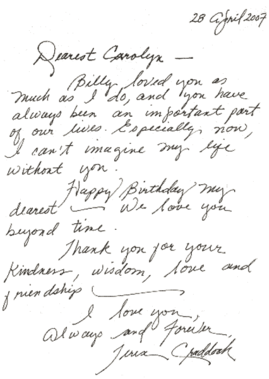 28 April 2007
Dearest Carolyn —
Billy loved you as
much as I do, and you have
always been an important part
of our lives. Especially now,
I can't imagine my life
without you.
Happy Birthday my
dearest — We love you
beyond time.
Thank you for your
kindness, wisdom, love and
friendship —
I love you,
Always and forever,
Craddock